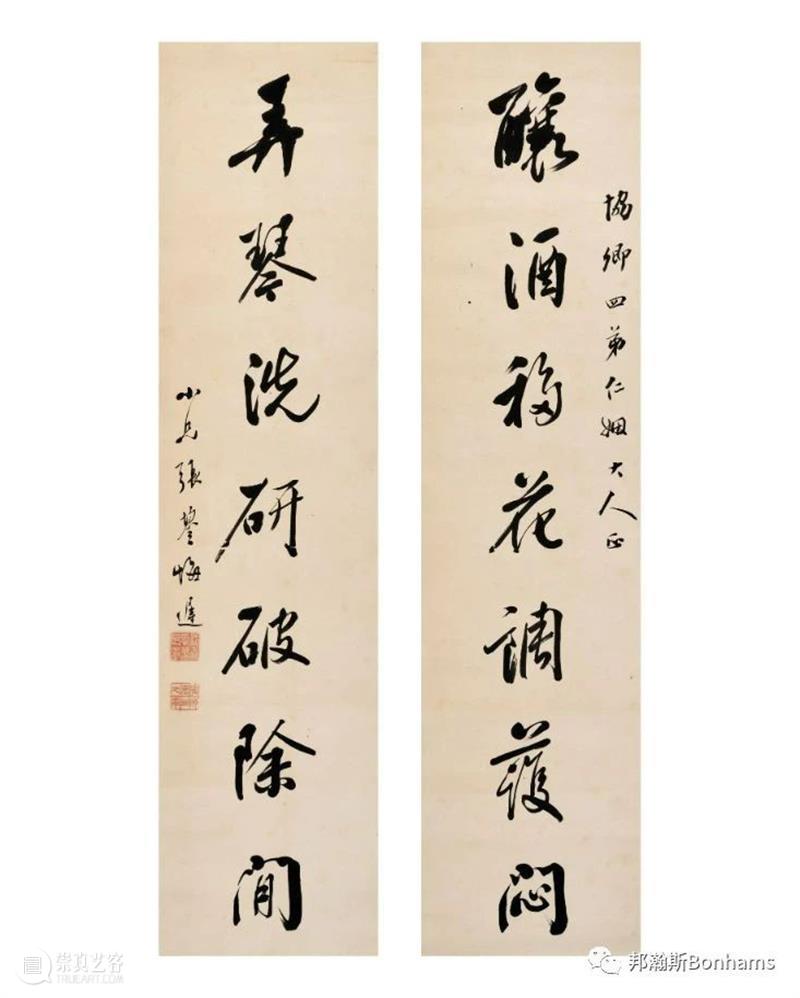 協卿四弟仁姻大人正
釀酒移花調護悶
弄琴洗研破除閒
小兄張 悔遲
崇真艺客
TRUEART.COM
邦瀚斯Bonhams